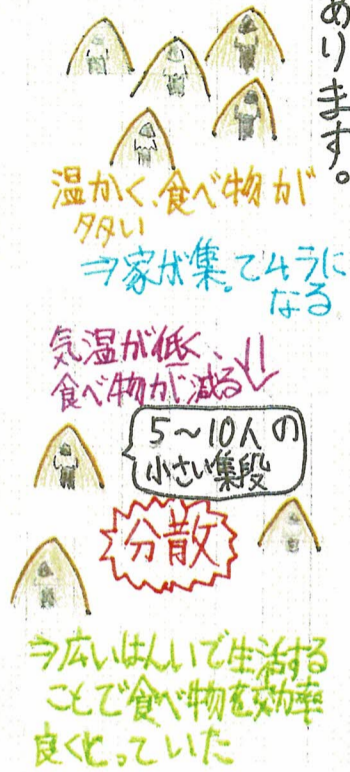 あります。
温かく、食べ物が
多い
⇒家が集。てムラに
なる
気温が低く、
食べ物が減る
5〜10人の
小さい集段
分散
⇒広いはんいで生活する
ことで食べ物を効率
良くとっていた